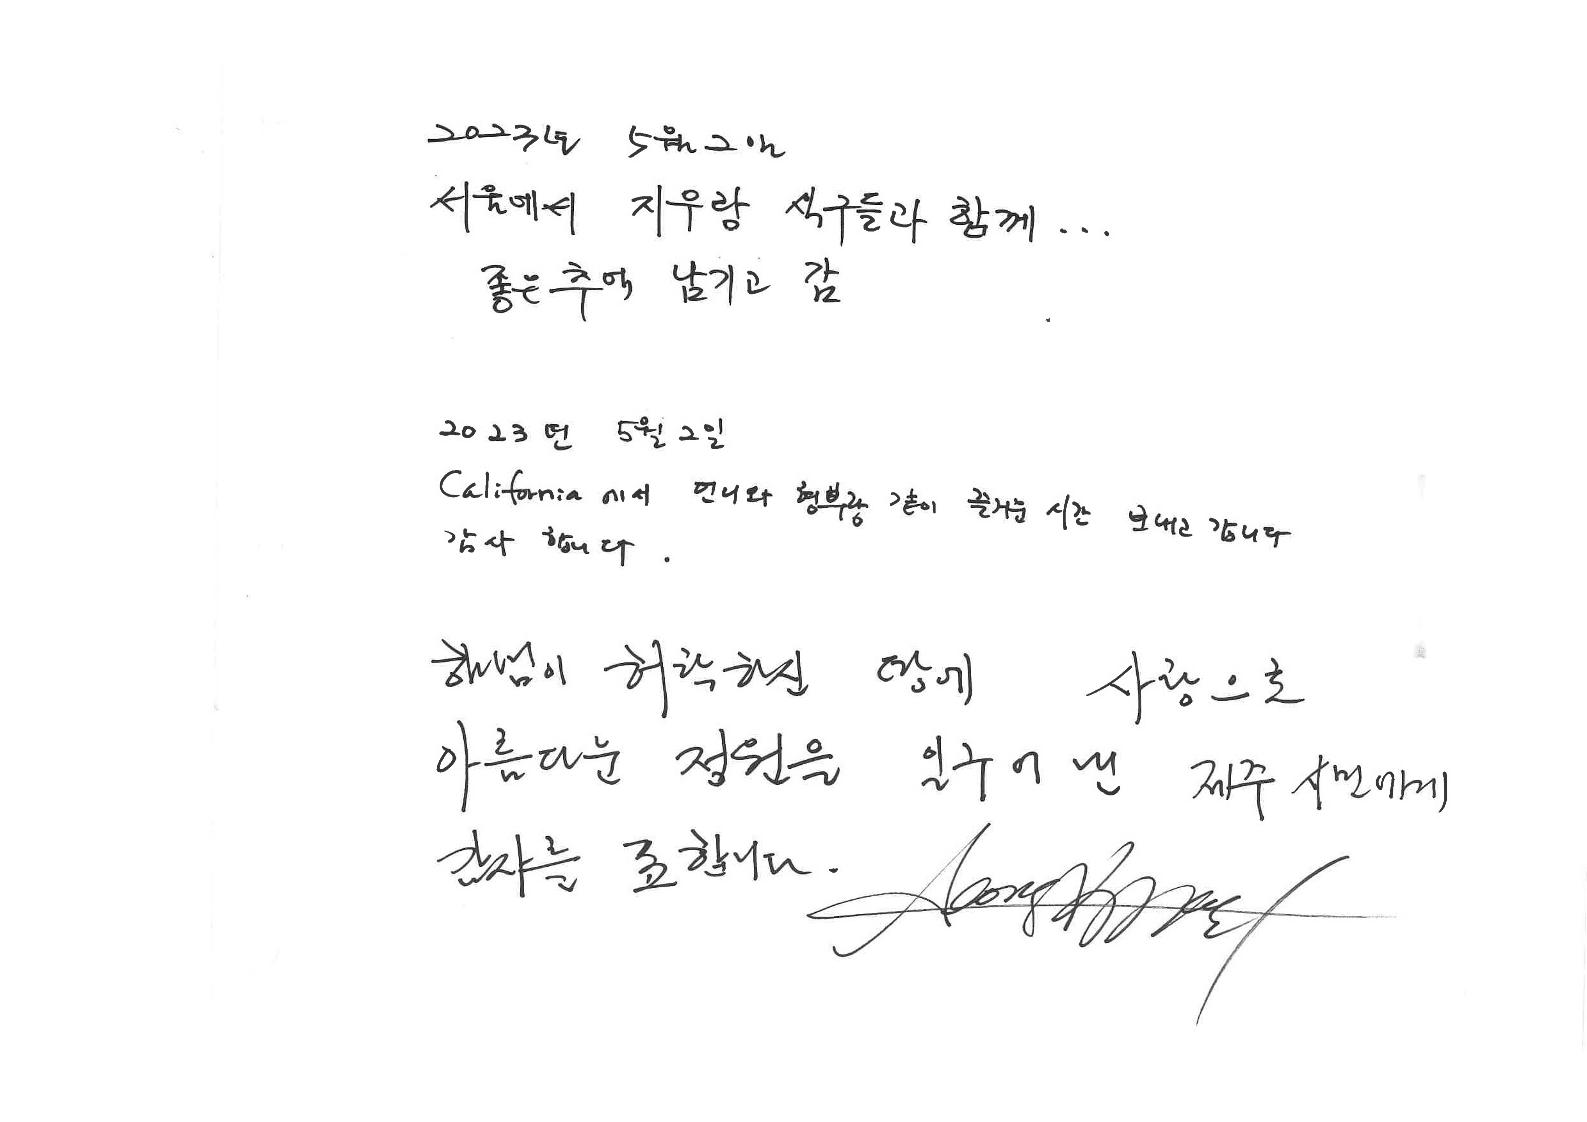 2023년 5월 2일
서울에서 지우랑 식구들과 함께...
좋은추억 남기고 감
2023년 5월 2일
California에서 언니와 형부랑 같이 즐거운 시간 보내고 갑니다
감사 합니다.
허락하신 땅에 사랑으로
아름다운 정원을 일구어 낸 제주
감사를 표합니다.